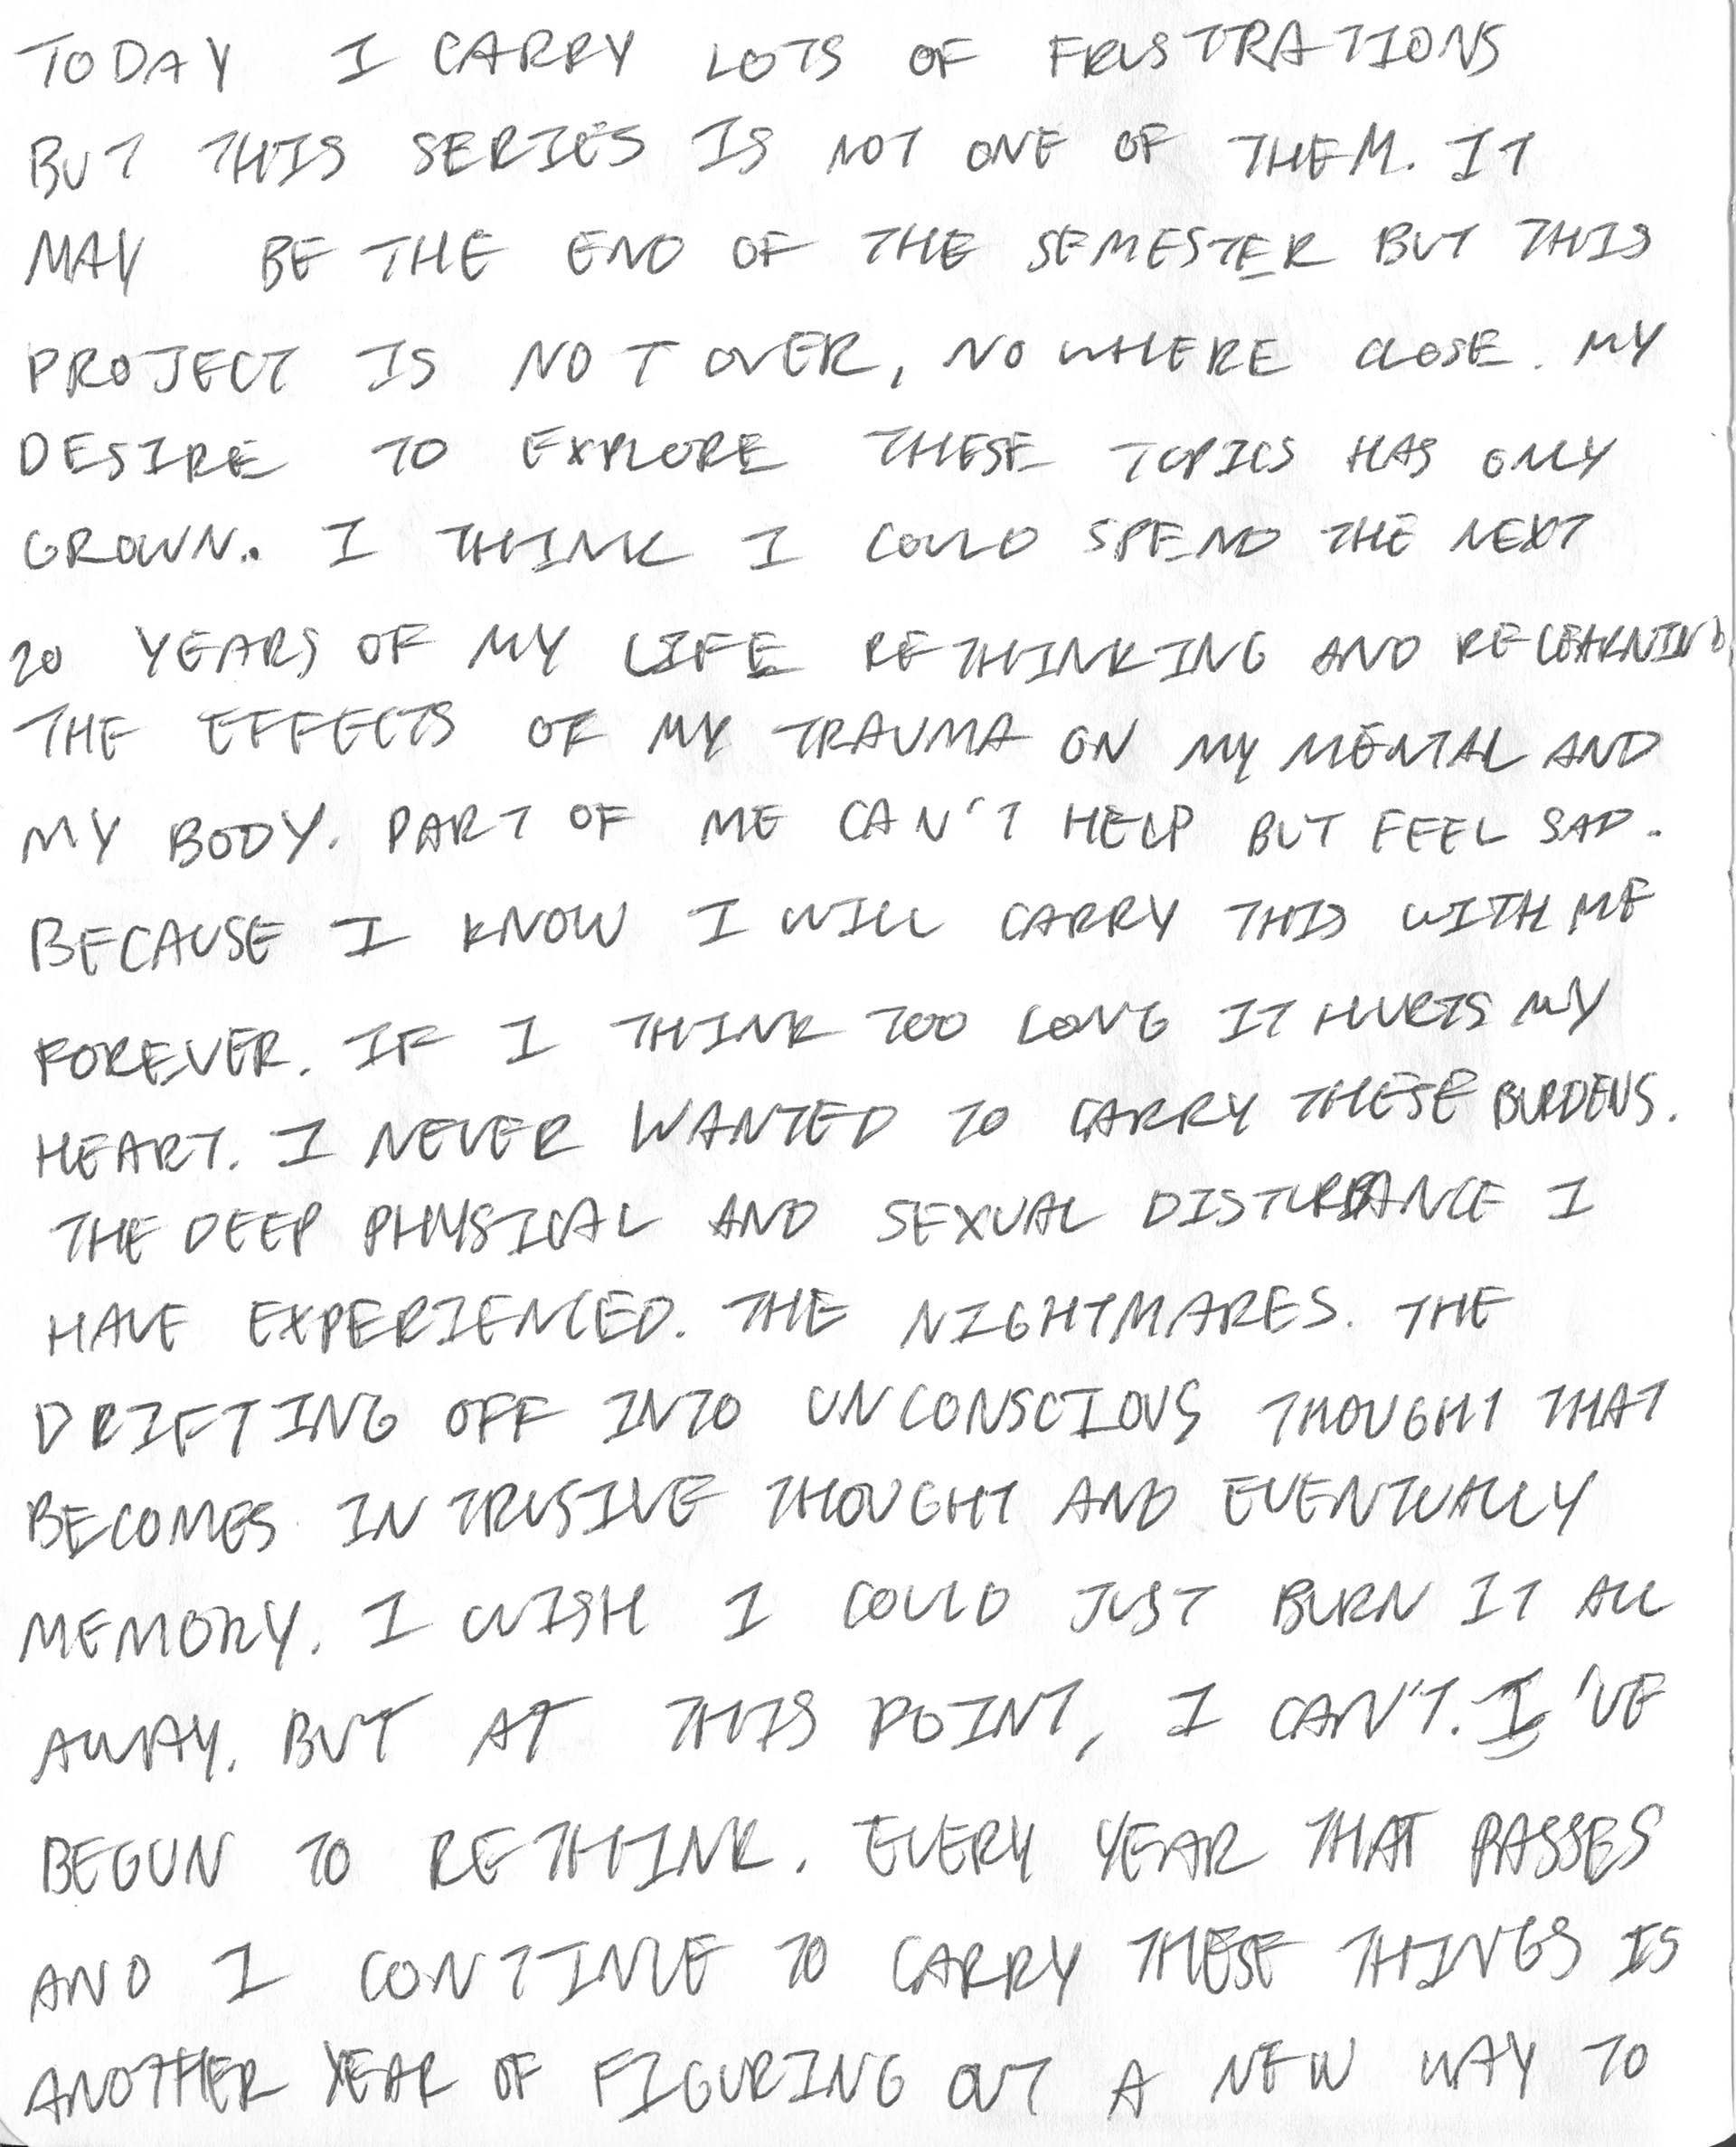 TODAY I CARRY LOTS OF FRUSTRATIONS
BUT THIS SERIES IS NOT ONE OF THEM. IT
MAY BE THE END OF THE SEMESTER BUT THIS
PROJECT IS NOT OVER, NOWHERE CLOSE. MY
DESIRE TO EXPLORE THESE TOPICS HAS ONLY
GROWN. I THINK I COULD SPEND THE NEXT
20 YEARS OF MY LIFE RETHINKING AND RELEARNING
THE EFFECTS OF MY TRAUMA ON MY MENTAL AND
MY BODY. PART OF ME CAN'T HELP BUT FEEL SAD.
BECAUSE I KNOW I WILL CARRY THIS WITH ME
FOREVER. IF I THINK TOO LONG IT HURTS MY
HEART. I NEVER WANTED TO CARRY THESE BURDENS.
THE DEEP PHYSICAL AND SEXUAL DISTURBANCE I
HAVE EXPERIENCED. THE NIGHTMARES. THE
DRIFTING OFF INTO UNCONSCIOUS THOUGHT THAT
BECOMES INTRUSIVE THOUGHT AND EVENTUALLY
MEMORY. I WISH I COULD JUST BURN IT ALL
AWAY. BUT AT THIS POINT, I CAN'T. I'VE
BEGUN TO RETHINK. EVERY YEAR THAT PASSES
AND I CONTINUE TO CARRY THESE THINGS IS
ANOTHER YEAR OF FIGURING OUT A NEW WAY TO